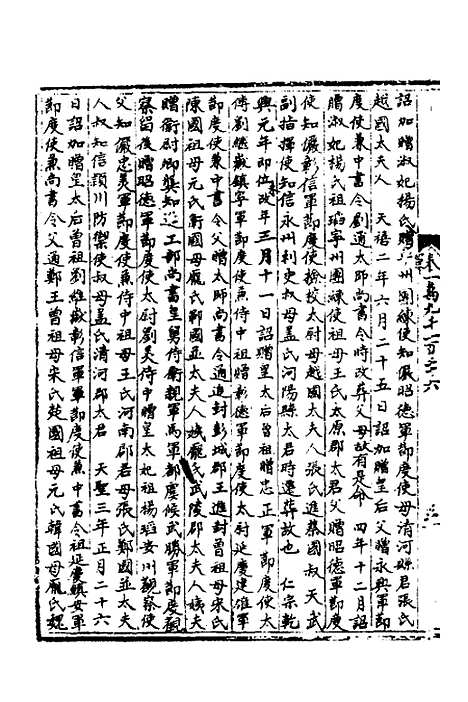 詔加贈淑妃楊氏贈𡩋州團練使知儼昭德軍節度使母清河縣君張氏
越國太夫人　天禧二年六月二十五日詔加贈皇后父贈永興軍節
度使兼中書令劉通太師尚書令時改葬父母故有是命　四年十二月詔
贈淑妃楊氏祖瑫寧州團練使祖母王氏太原郡太君父贈昭德軍節度
使知儼彰信軍節度使檢校太尉母張氏進蔡國叔天武
副指揮使知信永州刺史叔母蓋氏河陽縣太君時遷葬故也　仁宗乾
興元年即位未改年三月十一日詔贈皇太后曾祖贈忠正軍節度使太
傅劉維嶽鎮寧軍節度使兼侍中祖贈彰德軍節度使太尉延慶建雄軍
節度使兼中書令父贈太師尚書令通進封彭城郡王進封曾祖母宋氏
陳國祖母元氏衛國母龐氏鄭國並太夫人姨龐氏武陵郡太夫人姨夫
贈衛尉卿龔知進工部尚書皇舅侍衛親軍馬軍都虞候武勝軍節度觀
察留後贈昭德軍節度使太尉劉美侍中贈皇太妃祖楊瑫安州觀察使
父知儼忠武軍節度使兼侍中祖母王氏河南郡君母張氏鄭國並太夫
人叔知信潁川防禦使叔母蓋氏清河郡太君　天聖三年正月二十六
日詔加贈皇太后曾祖劉維嶽彰信軍節度使兼中書令祖延慶鎮安軍
節度使兼尚書令父通鄭王曾祖母宋氏楚國祖母元氏韓國母龐氏魏
卷一萬九千一百三十六